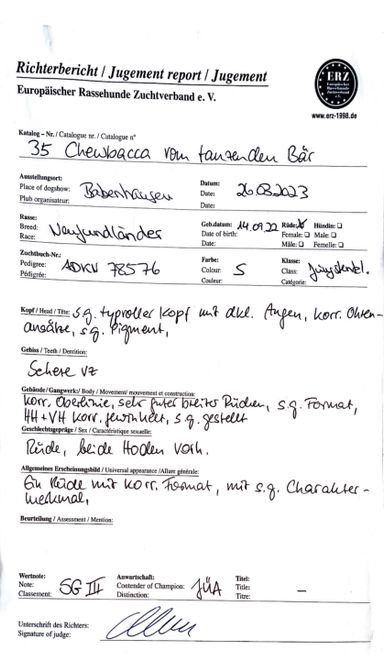 Richterbericht / Jugement report / Jugement
Europäischer Rassehunde Zuchtverband e. V.
ERZ
Europäischer
Rassehunde
Zuchtverband
e.V.
www.erz-1998.de
Katalog – Nr. / Catalogue nr. / Catalogue n°
35 Chewbacca vom tanzenden Bär
Ausstellungsort:
Place of dogshow:
Plub organisateur:
Babenhausen
Datum:
Date:
Date:
26.03.2023
Rasse:
Breed:
Race:
Neufundländer
Geb.datum: 14.09.22 Rüde: X Hündin:
Date of birth: Female: Male:
Date: Mâle: Femelle:
Zuchtbuch-Nr.:
Pedigree:
Pédigrée:
ADKV 78576
Farbe:
Colour:
Couleur:
S
Klasse:
Class:
Catégorie:
Kopf / Head / Tête: s.g. typvoller Kopf mit dkl. Augen, korr. Ohren-
ansätze, s.g. Pigment,
Gebiss / Teeth / Dentition:
Schere vz
Gebäude / Gangwerk: / Body / Movement/ mouvement et construction:
korr. Oberlinie, sehr guter breiter Rücken, s.g. Format,
HH+VH korr. gewinkelt, s.g. gestellt
Geschlechtsgepräge / Sex / Caractéristique sexuelle:
Rüde, beide Hoden vorh.
Allgemeines Erscheinungsbild / Universal appearance /Allure générale:
Ein Rüde mit korr. Format, mit s.g. Charakter-
merkmal,
Beurteilung / Assessment / Mention:
Wertnote:
Note:
Classement:
SG III
Anwartschaft:
Contender of Champion:
Distinction:
JüA
Titel:
Title:
Titre:
–
Unterschrift des Richters:
Signature of judge: